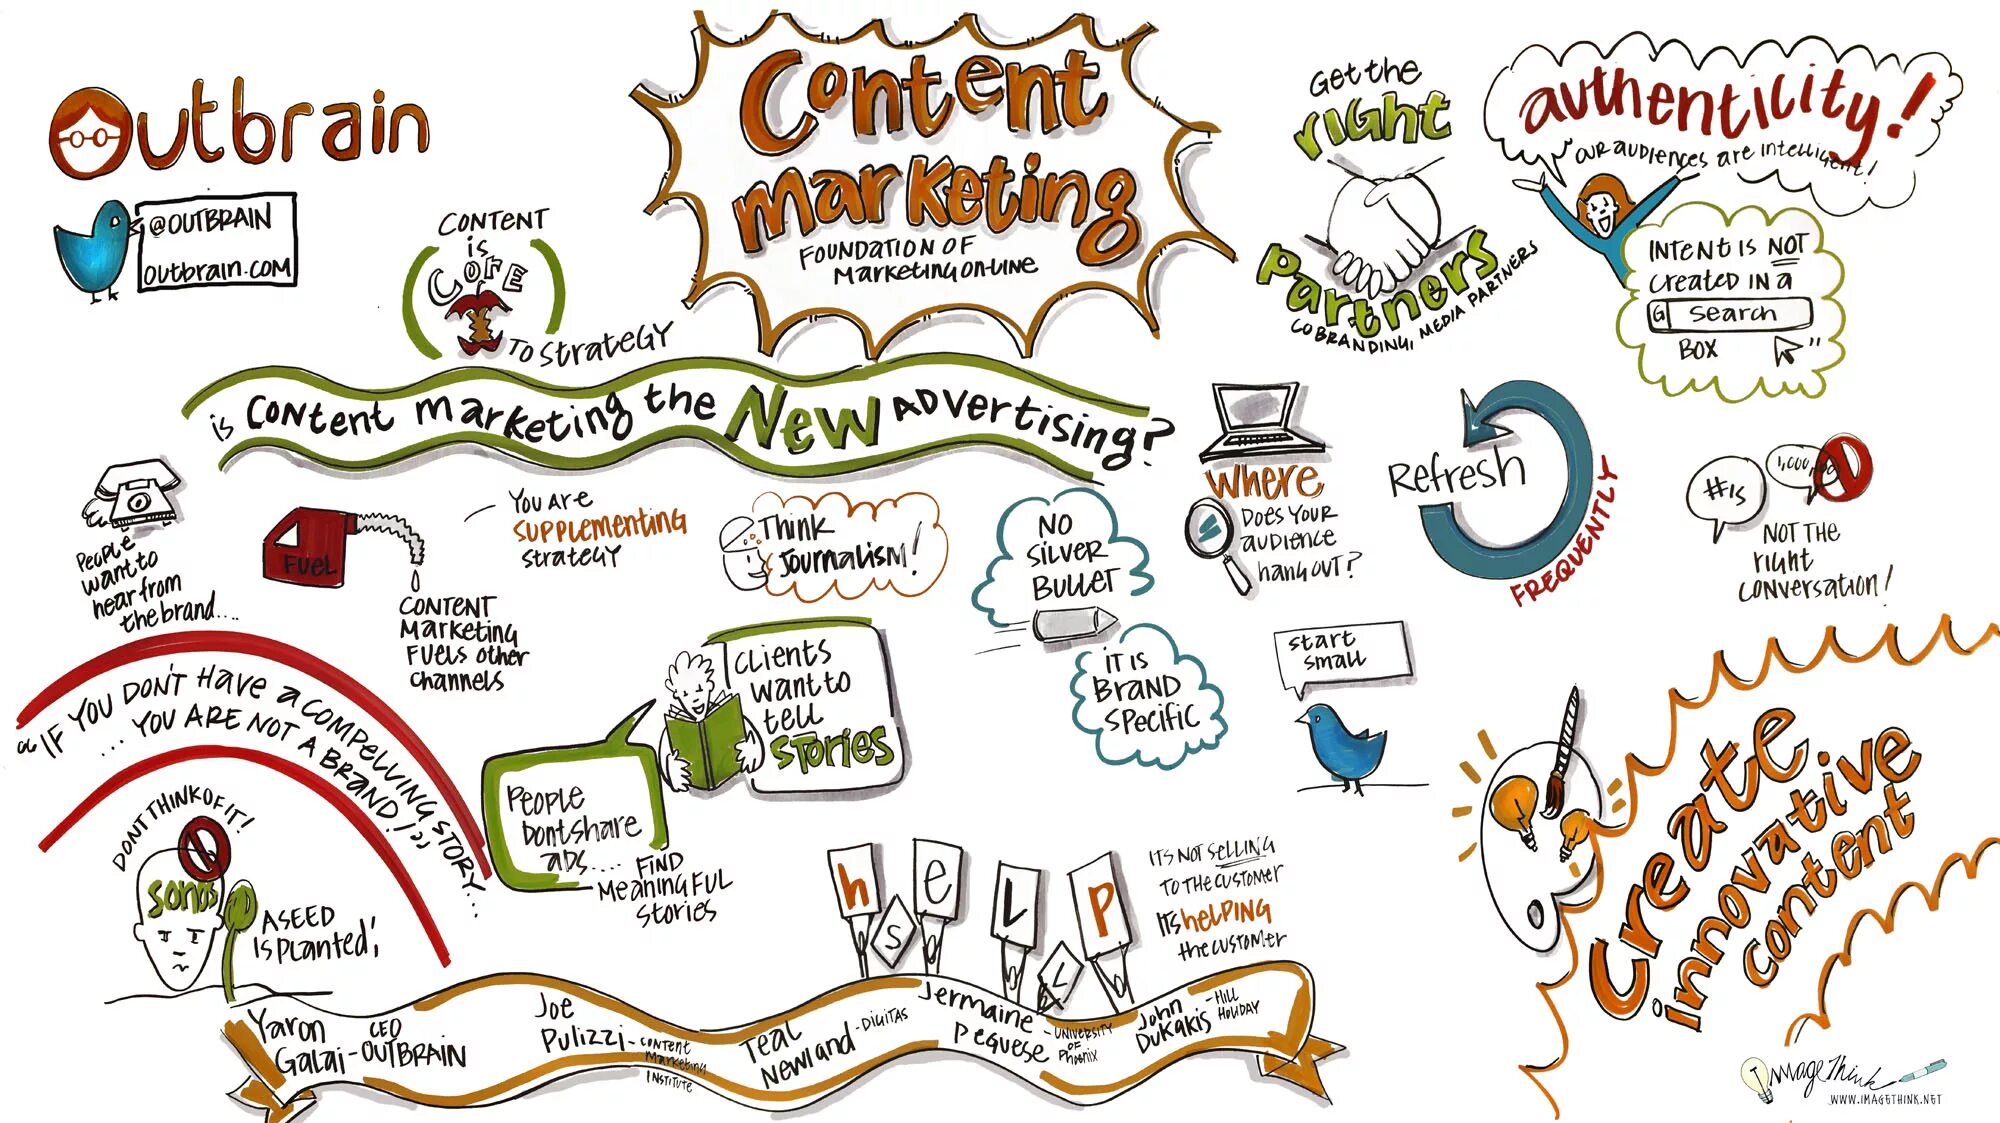 Outbrain
@OUTBRAIN
outbrain.com
CONTENT
is
CORE
TO STRATEGY
Content
marketing
FOUNDATION OF
MARKETING ON-LINE
Get the
right
Partners
COBRANDING, MEDIA PARTNERS
authenticity!
"OUR AUDIENCES are intelligent!
INTENT IS NOT
created IN A
G search
BOX "
is content marketing the New ADvertising?
People
want to
hear from
the brand....
FUEL
CONTENT
Marketing
FUELS other
channels
You are
SUPPLEMENTING
strategy
Think
Journalism!
NO
SILVER
BULLET
IT IS
BRAND
specific
Where
DOES YOUR
audience
hang out?
Refresh
FREQUENTLY
#is
1,000,000
NOT THE
right
conversation!
"IF YOU DON'T HAVE a COMPELLING STORY...
... YOU ARE NOT A BRAND!"
DON'T THINK OF IT!
SONOS
A SEED
IS planted!
People
Don't share
ADS....
FIND
MEANINGFUL
stories
CLIENTS
want to
tell
STORIES
start
small
help
S
L
IT'S NOT SELLING
TO THE CUSTOMER
ITS HELPING
the customer
Create
innovative
content
Yaron
Galai - CEO
OUTBRAIN
Joe
Pulizzi - CONTENT
Marketing
INSTITUTE
Teal
Newland - DIGITAS
Jermaine
Peguese - UNIVERSITY
OF
Phoenix
John
Dukakis - HILL
HOLIDAY
ImageThink
WWW.IMAGETHINK.NET